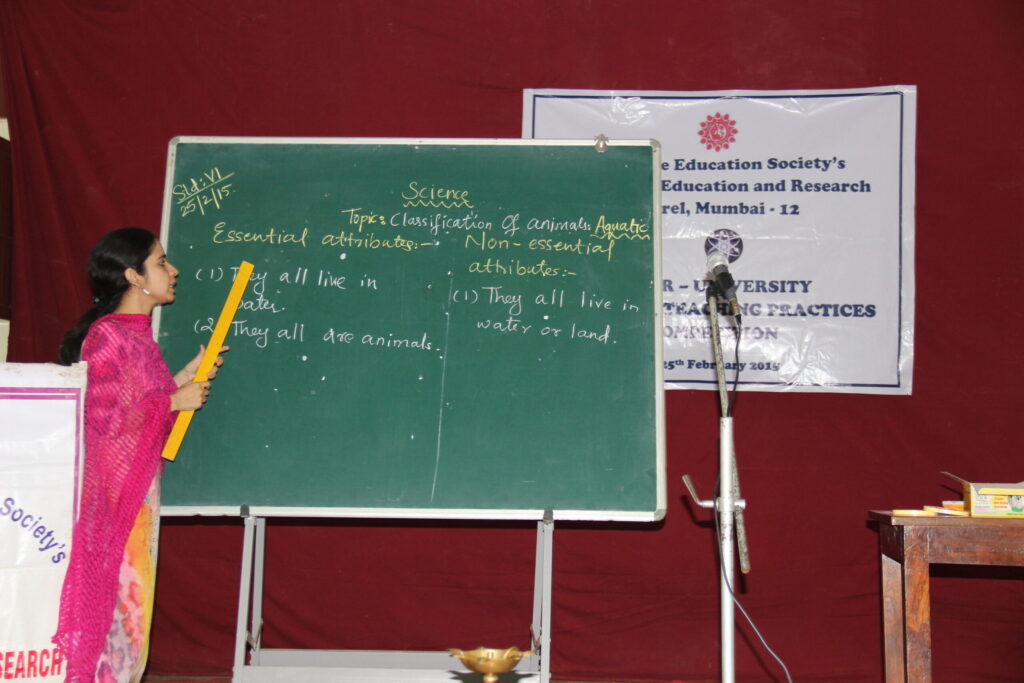 Std: VI
25/2/15.
Science
Topic: Classification Of animals: Aquatic
Essential attributes:-
(1) They all live in
water.
(2) They all are animals.
Non-essential
attributes:-
(1) They all live in
water or land.
e Education Society's
Education and Research
rel, Mumbai - 12
R – UNIVERSITY
TEACHING PRACTICES
OMPETITION
25th February 2015
Society's
SEARCH